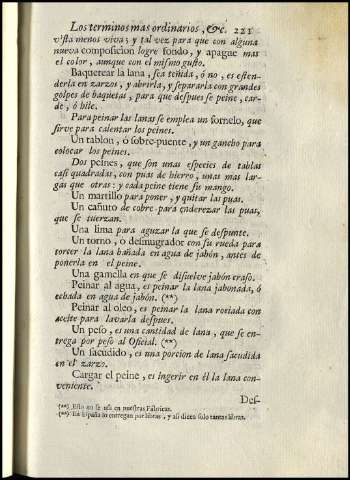 Los terminos mas ordinarios, &c. 221
vista menos viva; y tal vez para que con alguna
nueva composicion logre fondo, y apague mas
el color, aunque con el mismo gusto.
Baquetear la lana, sea teñida, ó no, es esten-
derla en zarzos, y abrirla, y separarla con grandes
golpes de baquetas, para que despues se peine, car-
de, ó hile.
Para peinar las lanas se emplea un fornelo, que
sirve para calentar los peines.
Un tablon, ó sobre-puente, y un gancho para
colocar los peines.
Dos peines, que son unas especies de tablas
casi quadradas, con puas de hierro, unas mas lar-
gas que otras: y cada peine tiene su mango.
Un martillo para poner, y quitar las puas.
Un cañuto de cobre para enderezar las puas,
que se tuerzan.
Una lima para aguzar la que se despunte.
Un torno, ó desmugrador con su rueda para
torcer la lana bañada en agua de jabón, antes de
ponerla en el peine.
Una gamella en que se disuelve jabón craso.
Peinar al agua, es peinar la lana jabonada, ó
echada en agua de jabón. (**)
Peinar al oleo, es peinar la lana rociada con
aceite para lavarla despues.
Un peso, es una cantidad de lana, que se en-
trega por peso al Oficial. (**)
Un sacudido, es una porcion de lana sacudida
en el zarzo.
Cargar el peine, es ingerir en él la lana con-
veniente.
Des-
(**) Esto no se usa en nuestras Fábricas.
(**) En España se entregan por libras, y asi dicen solo tantas libras.